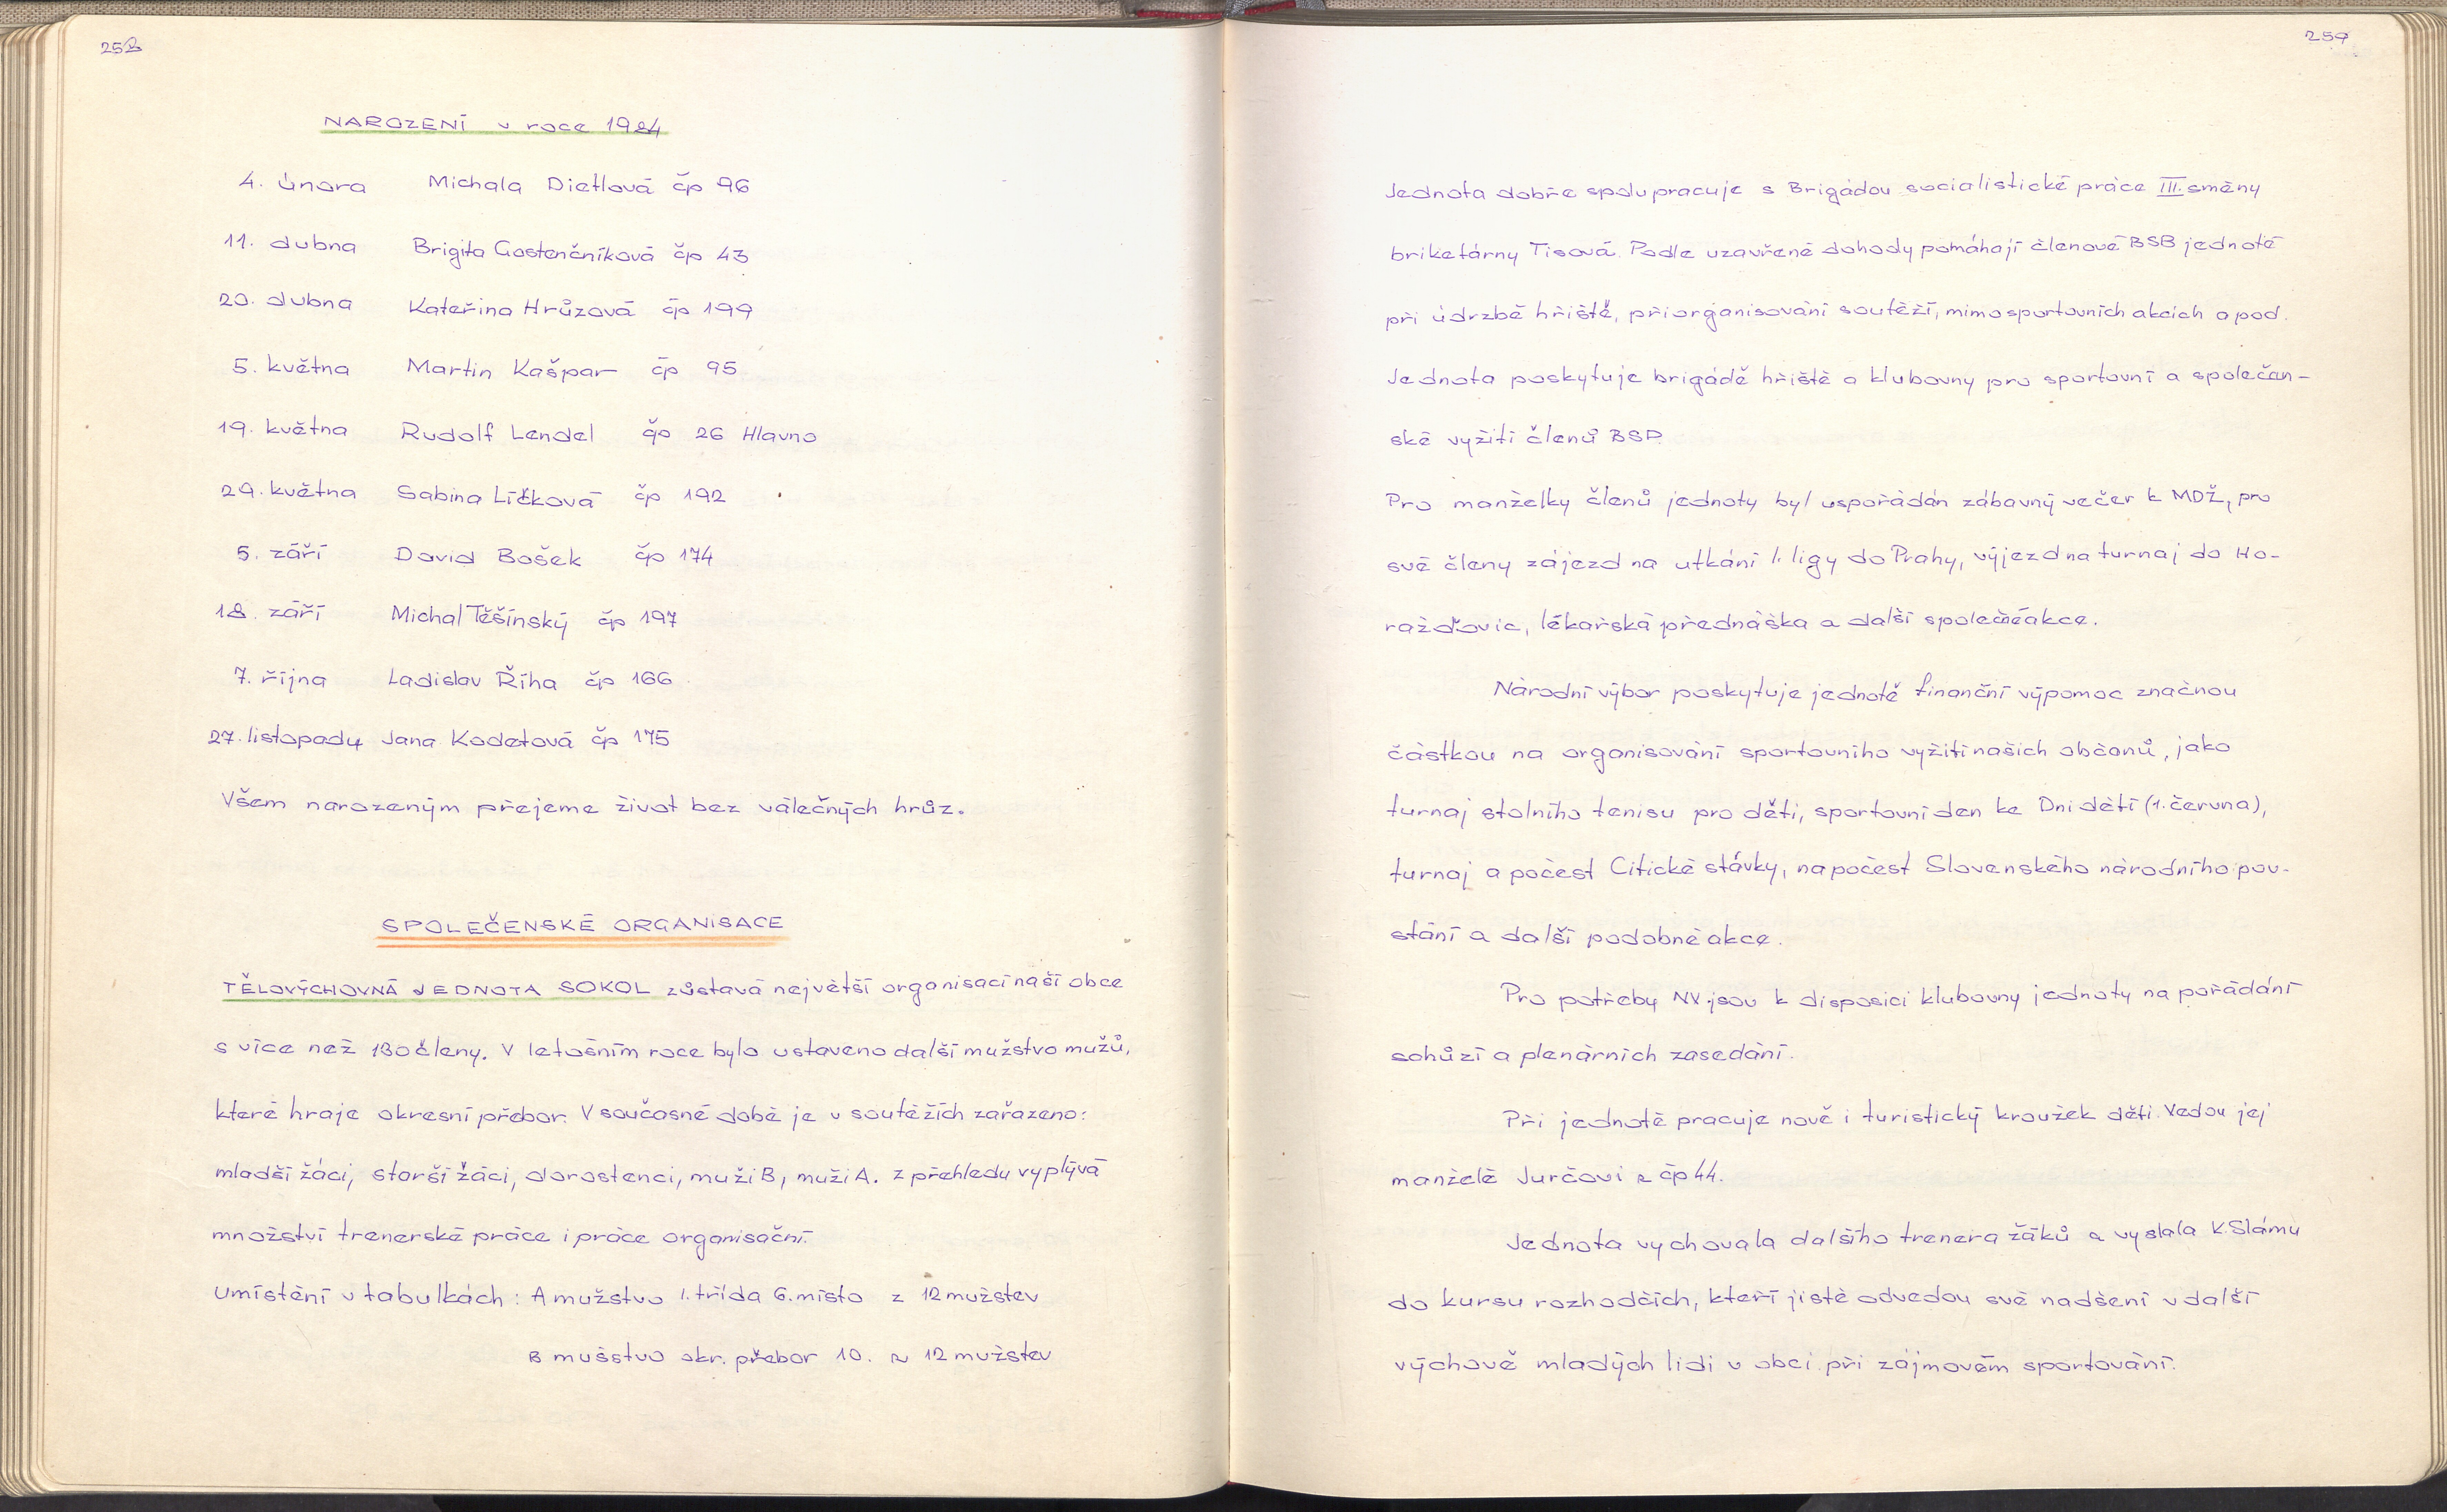 258
NAROZENÍ v roce 1984
4. února Michala Dietlová čp 96
11. dubna Brigita Gostenčníková čp 43
20. dubna Kateřina Hrůzová čp 199
5. května Martin Kašpar čp 95
19. května Rudolf Lendel čp 26 Hlavno
29. května Sabina Líčková čp 192
5. září David Bošek čp 174
18. září Michal Těšínský čp 197
7. října Ladislav Říha čp 166
27. listopadu Jana Kodetová čp 175
Všem narozeným přejeme život bez válečných hrůz.
SPOLEČENSKÉ ORGANISACE
TĚLOVÝCHOVNÁ JEDNOTA SOKOL zůstavá největší organisací naší obce
s více než 130 členy. V letošním roce bylo ustaveno další mužstvo mužů,
které hraje okresní přebor. V současné době je v soutěžích zařazeno:
mladší žáci, starší žáci, dorostenci, muži B, muži A. z přehledu vyplývá
množství trenerské práce i práce organisační.
Umístění v tabulkách: A mužstvo I. třída 6. místo z 12 mužstev
B mušstvo okr. přebor 10. z 12 mužstev
259
Jednota dobře spolupracuje s Brigádou socialistické práce III. směny
briketárny Tisová. Podle uzavřené dohody pomáhají členové BSB jednotě
při údrzbě hřiště, při organisování soutěží, mimosportovních akcích a pod.
Jednota poskytuje brigádě hřiště a klubovny pro sportovní a společan-
ské vyžití členů BSP.
Pro manželky členů jednoty byl uspořádán zábavný večer k MDŽ, pro
své členy zájezd na utkání I. ligy do Prahy, výjezd na turnaj do Ho-
ražďovic, lékařská přednáška a další společné akce.
Národní výbor poskytuje jednotě finanční výpomoc značnou
částkou na organisování sportovního vyžití našich občanů, jako
turnaj stolního tenisu pro děti, sportovní den ke Dni dětí (1. června),
turnaj a počest Citické stávky, na počest Slovenského národního pov-
stání a další podobné akce.
Pro potřeby NV jsou k disposici klubovny jednoty na pořádání
schůzí a plenárních zasedání.
Při jednotě pracuje nově i turistický kroužek dětí. Vedou jej
manželé Jurčovi z čp 44.
Jednota vychovala dalšího trenera žáků a vyslala K. Slámu
do kursu rozhodčích, kteří jistě odvedou své nadšení v další
výchově mladých lidí v obci při zájmovém sportování.